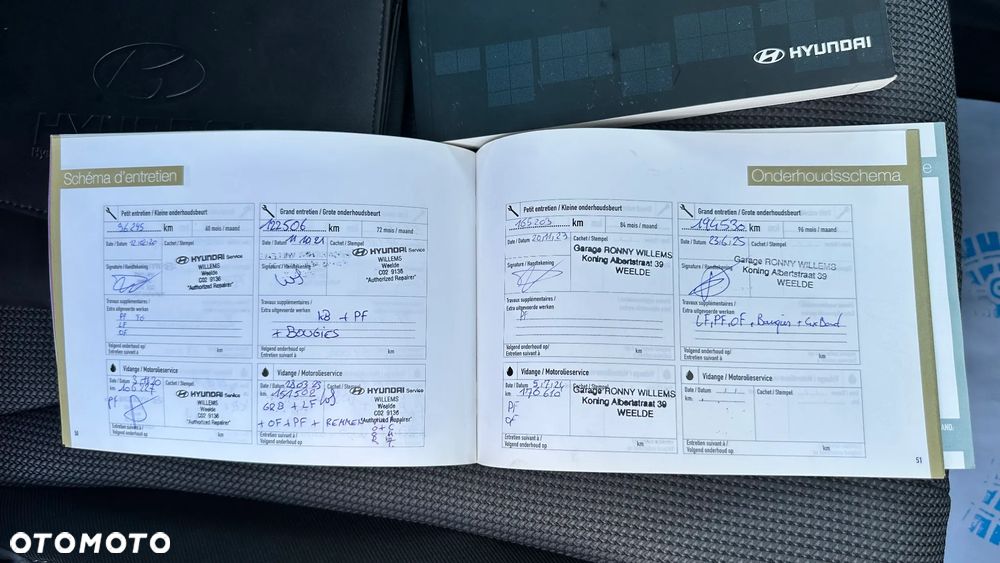 HYUNDAI
Schéma d'entretien
Onderhoudsschema
Petit entretien / Kleine onderhoudsbeurt
96295 km
60 mois / maand
Date / Datum 12.02.20
Cachet / Stempel
HYUNDAI Service
WILLEMS
Weelde
C02 9136
"Authorized Repairer"
Signature / Handtekening
Travaux supplémentaires /
Extra uitgevoerde werken
PF
LF
OF
Volgend onderhoud op/
Entretien suivant à
km
Vidange / Motorolieservice
Date / Datum
Cachet / Stempel
km
PF
HYUNDAI Service
WILLEMS
Weelde
C02 9136
"Authorized Repairer"
Entretien suivant à /
Volgend onderhoud op
km
50
Grand entretien / Grote onderhoudsbeurt
122506 km
72 mois / maand
Date / Datum 11.10.21
Cachet / Stempel
HYUNDAI Service
WILLEMS
Weelde
C02 9136
"Authorized Repairer"
Signature / Handtekening
Travaux supplémentaires /
Extra uitgevoerde werken
+ PF
+ BOUGIES
Volgend onderhoud op/
Entretien suivant à
km
Vidange / Motorolieservice
Date / Datum 28.03.23
Cachet / Stempel
km 151508
HYUNDAI Service
WILLEMS
Weelde
C02 9136
"Authorized Repairer"
+ LF
+ OF + PF + REMMEN
Entretien suivant à /
Volgend onderhoud op
Petit entretien / Kleine onderhoudsbeurt
165203 km
84 mois / maand
Date / Datum 20.11.23
Cachet / Stempel
Garage RONNY WILLEMS
Koning Albertstraat 39
WEELDE
Signature / Handtekening
Travaux supplémentaires /
Extra uitgevoerde werken
PF
Volgend onderhoud op/
Entretien suivant à
km
Vidange / Motorolieservice
Date / Datum 5.7.24
Cachet / Stempel
km 170610
Garage RONNY WILLEMS
Koning Albertstraat 39
WEELDE
PF
OF
Entretien suivant à /
Volgend onderhoud op
km
Grand entretien / Grote onderhoudsbeurt
194530 km
96 mois / maand
Date / Datum 23.6.25
Cachet / Stempel
Garage RONNY WILLEMS
Koning Albertstraat 39
WEELDE
Signature / Handtekening
Travaux supplémentaires /
Extra uitgevoerde werken
LF, PF, OF, Bougies +
Volgend onderhoud op/
Entretien suivant à
km
Vidange / Motorolieservice
Date / Datum
Cachet / Stempel
km
Entretien suivant à /
Volgend onderhoud op
km
51
OTOMOTO